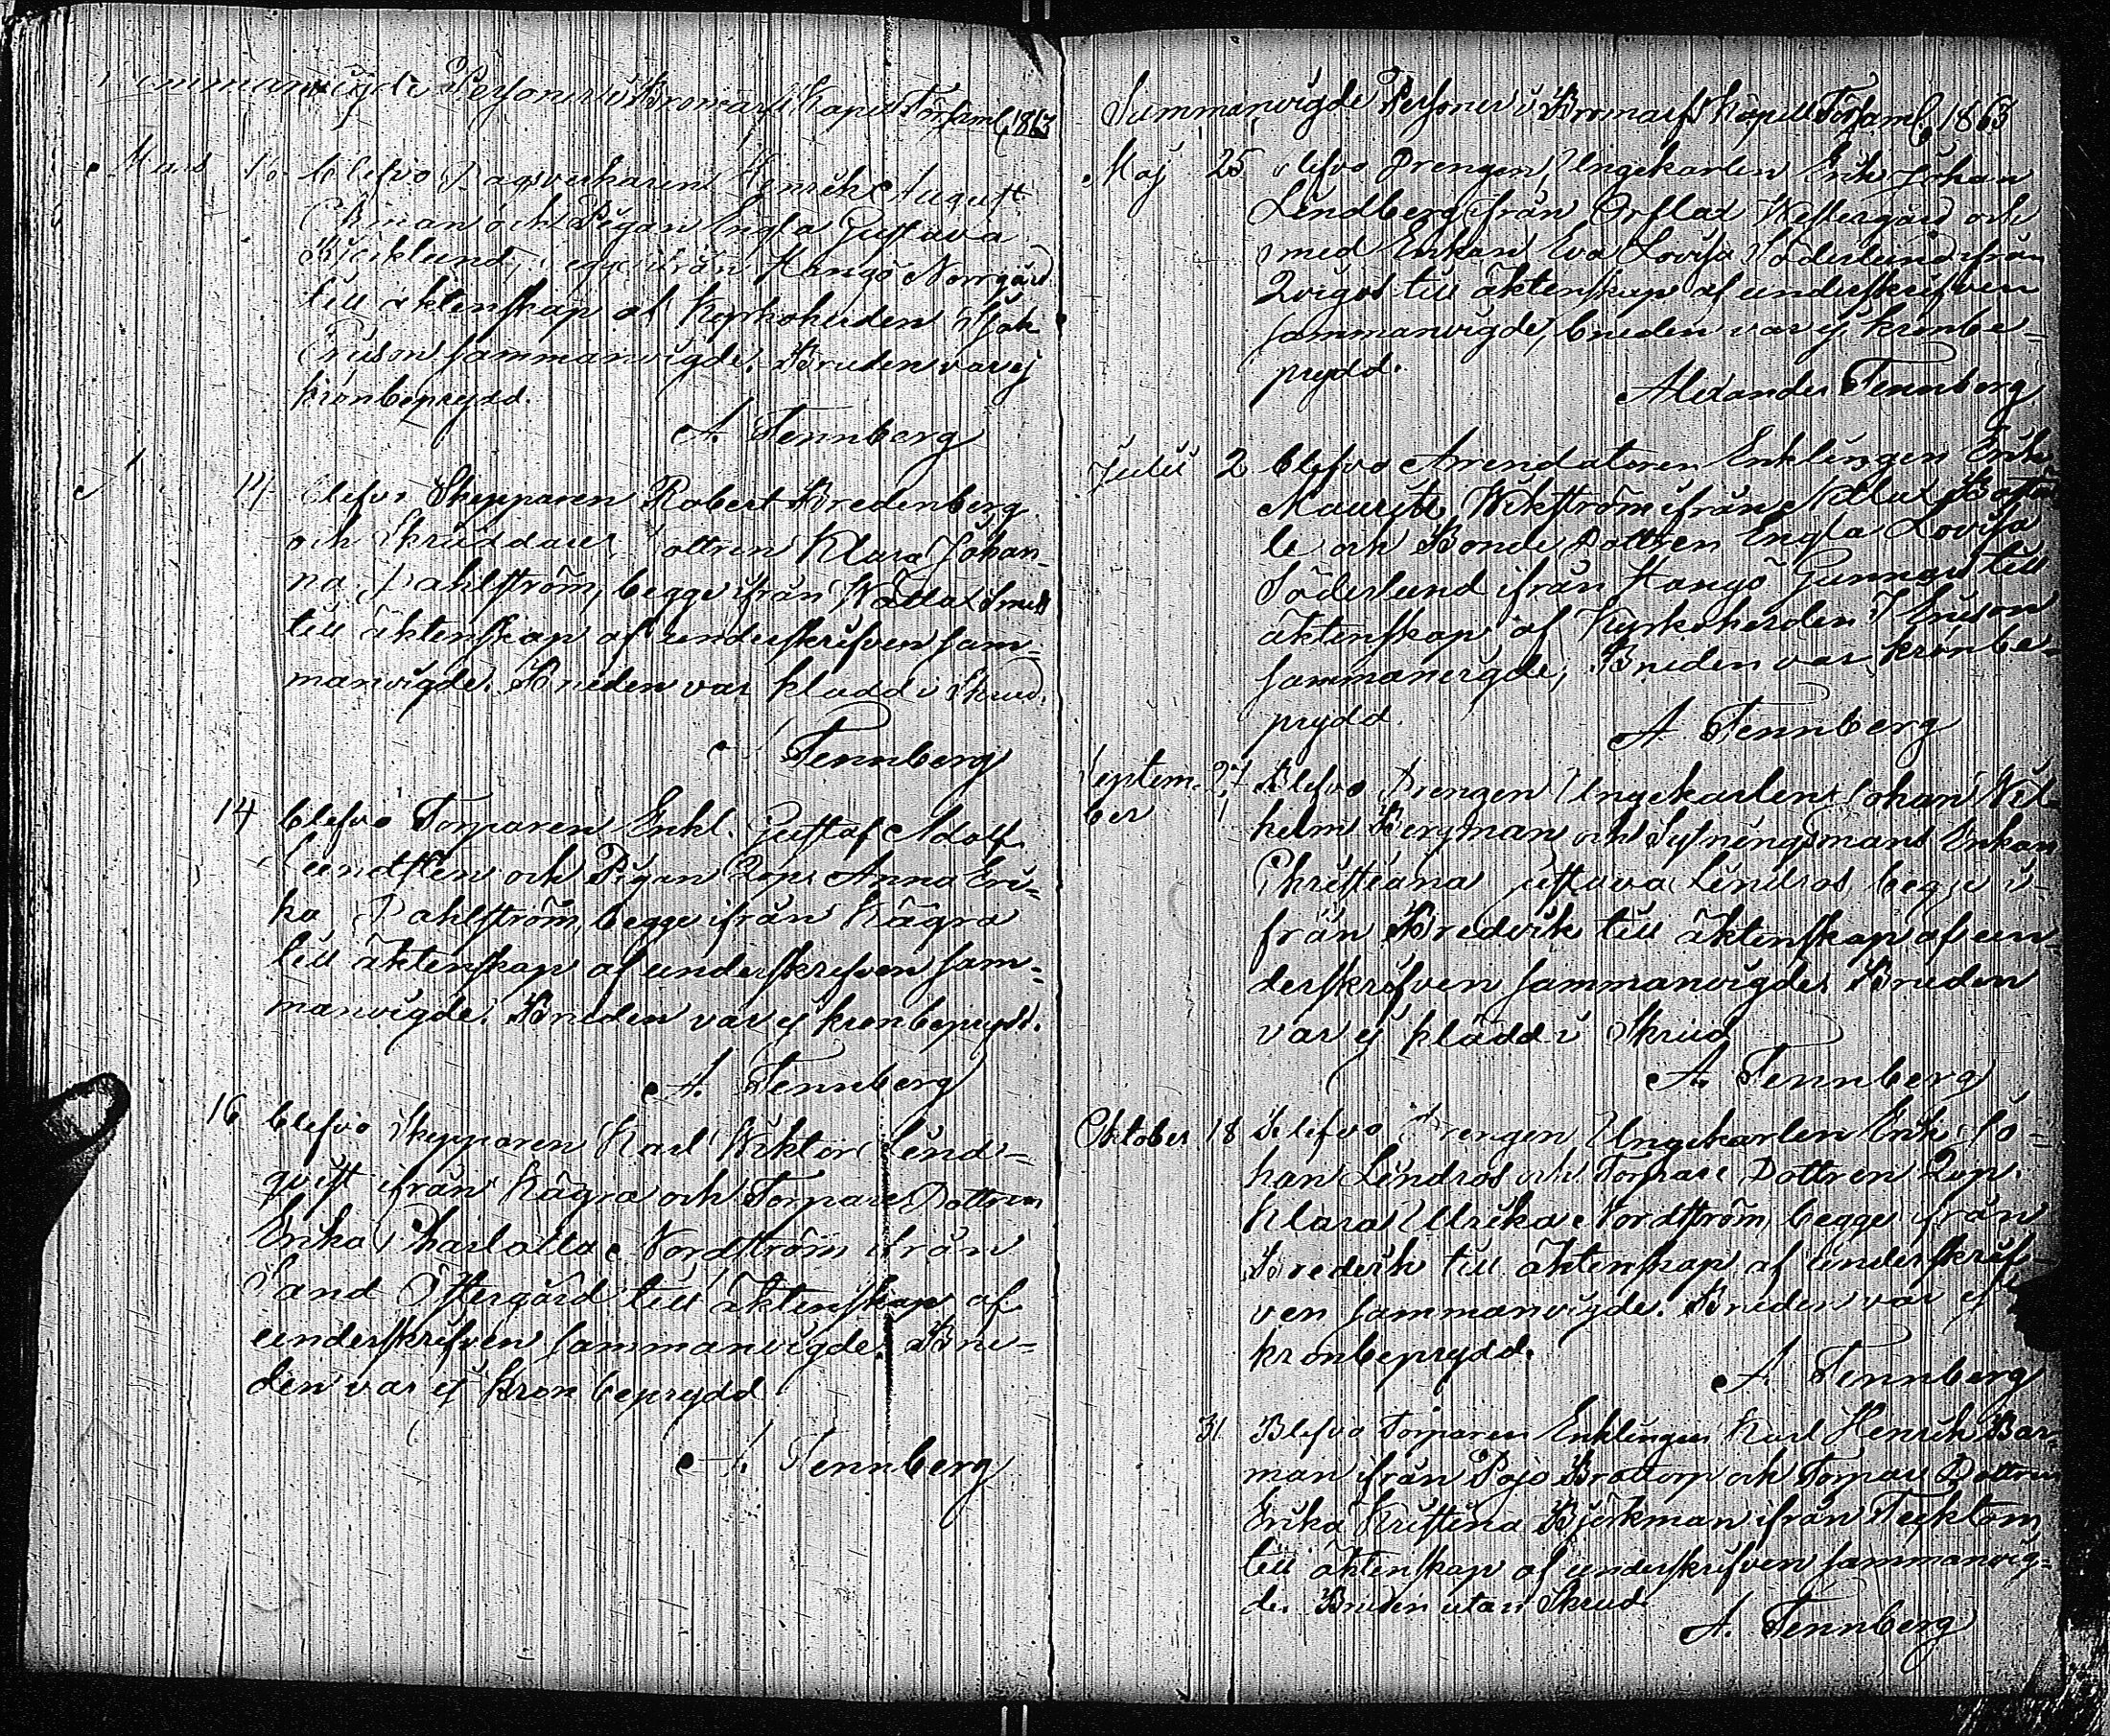 Sammanvigde Personer i Bromarfs Kapell Församl. 1863
Mars 10. blefvo Dagsverkaren Henrik August
Öhman och Pigan Engla Gustava
Bäcklund, begge ifrån Hangö Norrgård
till äktenskap af Kyrkoherden
Ericson sammanvigde. Bruden var ej
kronbeprydd.
A. Tennberg
blefvo Skepparen Robert Bredenberg
och Skräddare Dottren Klara Johan-
na Dahlström, begge ifrån
till äktenskap af underskrifven sam-
manvigde. Bruden var kladd i Skrud.
A. Tennberg
14 blefvo Torparen Enkl. Gustaf Adolf
Lindsten och Pigan Qvp. Anna Eri-
ka Dahlström, begge ifrån Kägra
till äktenskap af underskrifven sam-
manvigde. Bruden var ej kronbeprydd.
A. Tennberg
16 blefvo Skepparen Karl Wiktor Lind-
qvist ifrån Kägra och Torpare Dottren
Erika Charlotta Nordström ifrån
Sand Östergård till äktenskap af
underskrifven sammanvigde. Bru-
den var ej kron beprydd
A. Tennberg
Sammanvigde Personer i Bromarfs Kapell Församl. 1863
Maj 25 blefvo Drengen, Ungekarlen Erik Johan
Lindberg ifrån Orslax Westergård och
med Enkan Eva Lovisa Söderlund ifrån
till äktenskap af underskrifven
sammanvigde, bruden var ej kronbe-
prydd.
Alexander Tennberg
Julii 2 blefvo Arrendatoren Enklingen Erik
Maurits Wikström ifrån Kallax Bostäl-
le och Bonde Dottren Engla Lovisa
Söderlund ifrån Hangö Gunnars till
äktenskap af Kyrkoherden Ericson
sammanvigde, Bruden var kronbe-
prydd.
A. Tennberg
Septem- 27 Blefvo Drengen Ungekarlen Johan Wil-
ber helm Bergman och Sytningsmans Enkan
Christiana Gustava Lindros begge i-
från Bredvik till äktenskap af un-
derskrifven sammanvigde. Bruden
var ej klädd i Skrud
A. Tennberg
Oktober 18 Blefvo Drengen Ungekarlen Erik Jo-
han Lindros och Torpare Dottren Qvp.
Klara Ulrika Nordström, begge ifrån
Bredvik till äktenskap af underskrif-
ven sammanvigde. Bruden var ej
kronbeprydd.
A. Tennberg
31 Blefvo Torparen Enklingen Karl Henrik Bar-
man ifrån Pojo Brotorp och Torpare Dottren
Erika Kristina Björkman ifrån Täcktom
till äktenskap af underskrifven sammanvig-
de. Bruden utan Skrud.
A. Tennberg